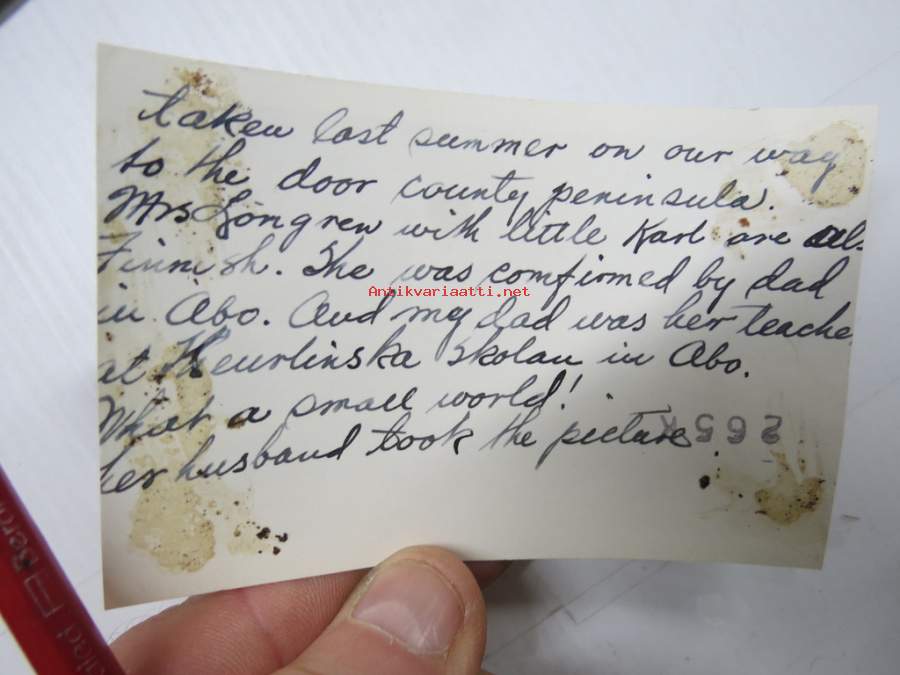 taken last summer on our way
to the door county peninsula.
Mrs Longren with little Karl are all
Finnish. She was comfirmed by dad
Antikvariaatti.net
in Abo. And my dad was her teache
at Heurlinska Skolan in Abo.
What a small world!
her husband took the picture
265